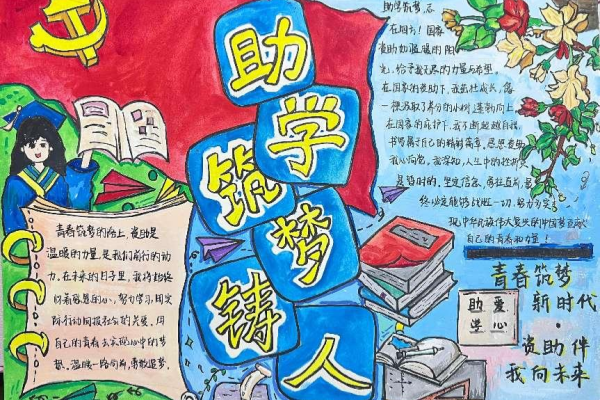 助学
筑梦
铸人
助学筑梦，不
在阳光！国家
资助如温暖的阳
光，给予我无尽的力量与希望。
在国家的资助下，我茁壮成长，像
一棵汲取了养分的小树，蓬勃向上。
在国家的庇护下，我不断超越自我，
书写属于自己的精彩篇章。
我心向党，我深知，人生中的挫折
是暂时的，坚定信念，勇往直前，
终必定能够战胜一切，努力
现中华民族伟大复兴的中国梦
自己的青春和力量！
青春筑梦的路上，资助是
温暖的力量，是我们前行的动
力，在未来的日子里，我将始终
怀着感恩的心，努力学习，用实
际行动回报社会的关爱，用
自己的青春去实现心中的梦
想，温暖一路向前，勇敢追梦。
助爱
学心
青春筑梦
新时代
·
资助伴
我向未来